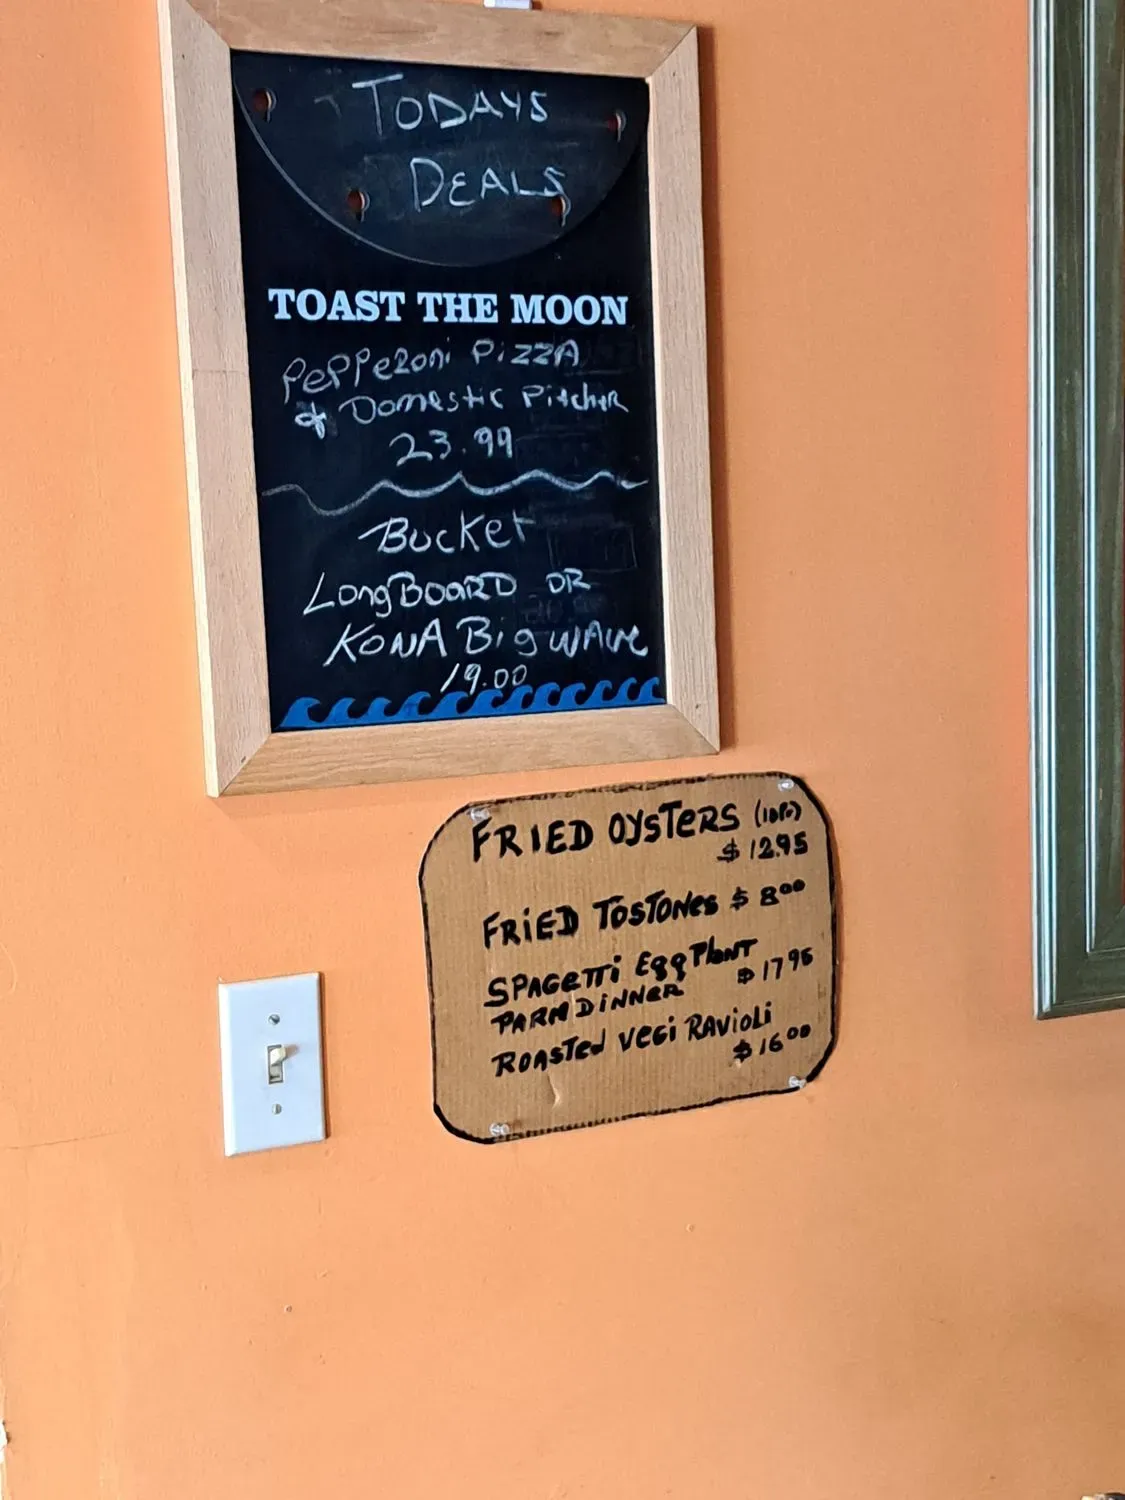 TODAYS
DEALS
TOAST THE MOON
PePPeRoni PiZZA
& Domestic PitcheR
23.99
BucKet
LongBoARD OR
KONA Big WAVe
19.00
FRIED OYSTeRS (10Pc)
$ 12.95
FRiED TOSTONes $ 8.00
SPAGeTTi EggPlanT
$ 17.95
PARM DiNNeR
ROASTed VEGi RAViOLi
$ 16.00